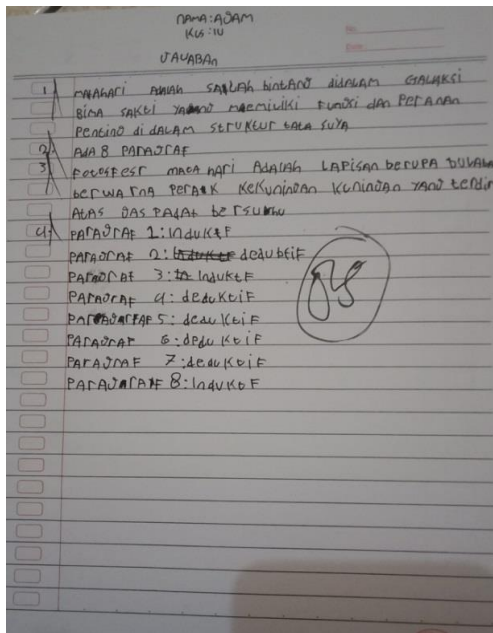 NAMA: ADAM
KLS: IV
JAWABAN
1 MATAHARI ADALAH SALAH bintANG diDALAM GALAKSI
BIMA SAKti YANG MEMILIKI FUNGSI dAN PERANAN
PENtiNG di DALAM StRUKtUR tAtA SUYA
2 ADA 8 PARAGRAF
3 FOtOSFEST MAtA HARI ADALAH LAPISAN bERUPA
bERWARNA PERAK KEKUNINGAN KUNINGAN YANG
AtAS GAS PADAt bERSUHU
4 PARAGRAF 1: INdUKtF
PARAGRAF 2: dEdUKtiF
PARAGRAF 3: INdUKtiF
PARAGRAF 4: dEdUKtiF
PARAGRAF 5: dEdUKtiF
PARAGRAF 6: dEdUKtiF
PARAGRAF 7: dEdUKtiF
PARAGRAF 8: INdUKtF